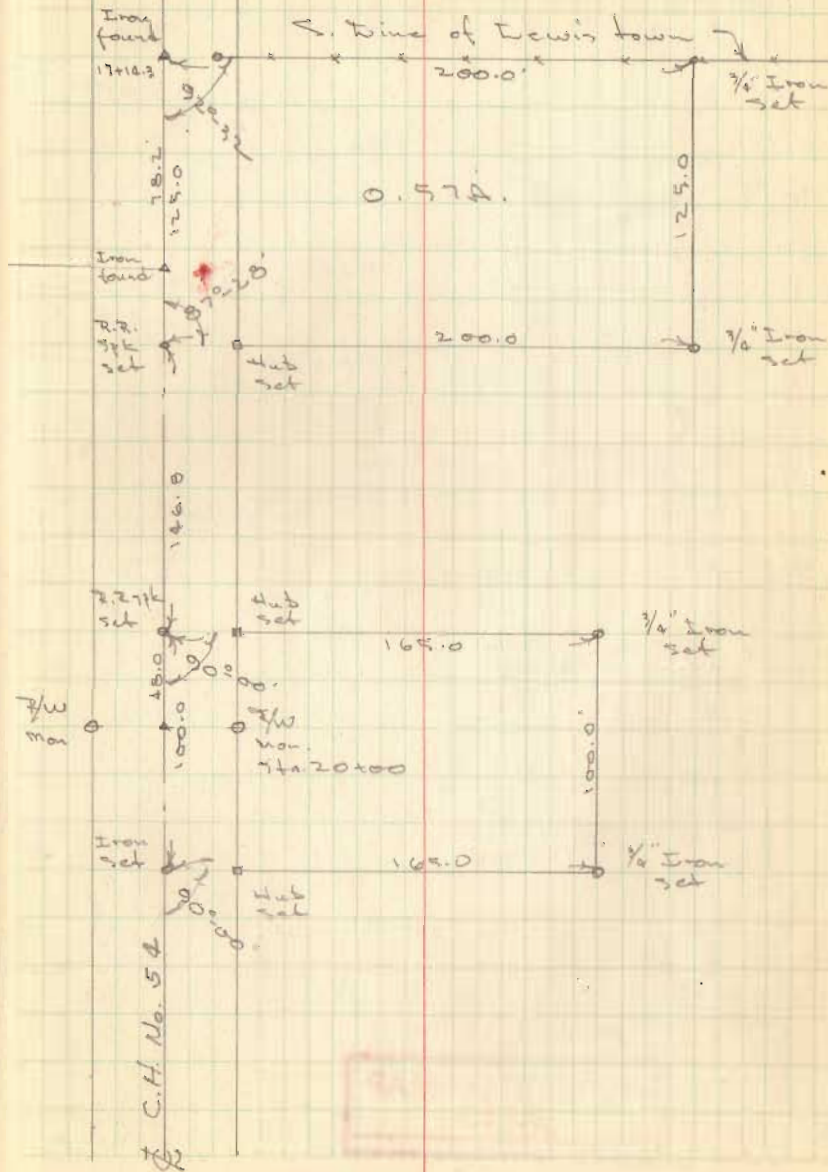 Iron
found
S. Line of Lewistown
17+14.3
200.0'
3/4" Iron
set
92°-32'
78.2
125.0
0.57A.
125.0
Iron
found
87°-28'
R.R.
spk
set
Hub
set
200.0
3/4" Iron
set
146.8
R.R. spk
set
Hub
set
165.0
3/4" Iron
set
90°-00'
48.0
100.0
R/W
mon
R/W
mon.
Sta. 20+00
100.0'
Iron
set
Hub
set
165.0
3/4" Iron
set
90°-00'
C.H. No. 54